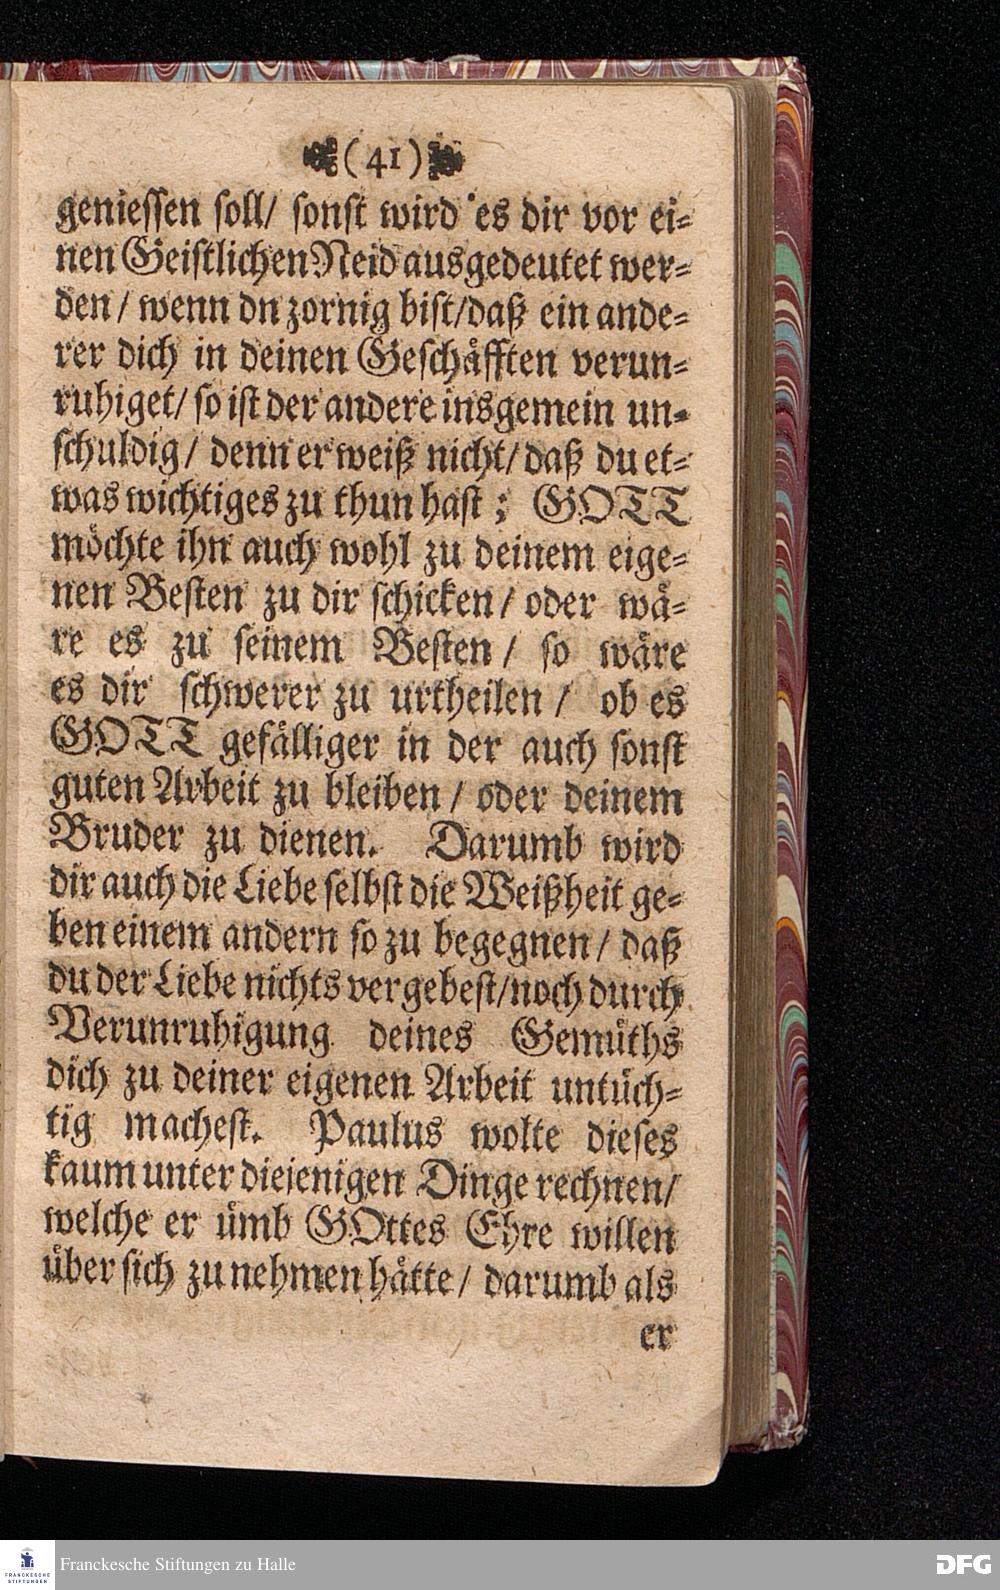 (41)
geniessen soll/ sonst wird es dir vor ei-
nen Geistlichen Neid ausgedeutet wer-
den/ wenn dn zornig bist/ daß ein ande-
rer dich in deinen Geschäfften verun-
ruhiget/ so ist der andere insgemein un-
schuldig/ denn er weiß nicht/ daß du et-
was wichtiges zu thun hast; GOTT
möchte ihn auch wohl zu deinem eige-
nen Besten zu dir schicken/ oder wä-
re es zu seinem Besten/ so wäre
es dir schwerer zu urtheilen/ ob es
GOTT gefälliger in der auch sonst
guten Arbeit zu bleiben/ oder deinem
Bruder zu dienen. Darumb wird
dir auch die Liebe selbst die Weißheit ge-
ben einem andern so zu begegnen/ daß
du der Liebe nichts vergebest/ noch durch
Verunruhigung deines Gemüths
dich zu deiner eigenen Arbeit untüch-
tig machest. Paulus wolte dieses
kaum unter diejenigen Dinge rechnen/
welche er ümb GOttes Ehre willen
über sich zu nehmen hätte/ darumb als
er
Franckesche Stiftungen zu Halle
FRANCKESCHE
STIFTUNGEN
DFG